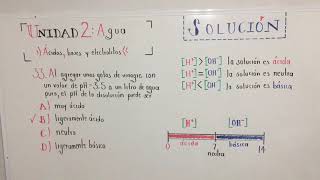 UNIDAD 2: Agua
1) Ácidos, bases y electrolitos
33. Al agregar unas gotas de vinagre con
un valor de pH=3.5 a un litro de agua
pura, el pH de la disolución puede ser
A) muy ácido
B) ligeramente ácido
C) neutra
D) ligeramente básica
SOLUCIÓN
[H⁺] > [OH⁻] la solución es ácida
[H⁺] = [OH⁻] la solución es neutra
[H⁺] < [OH⁻] la solución es básica
[H⁺] [OH⁻]
ácida básica
0 7 14
neutra